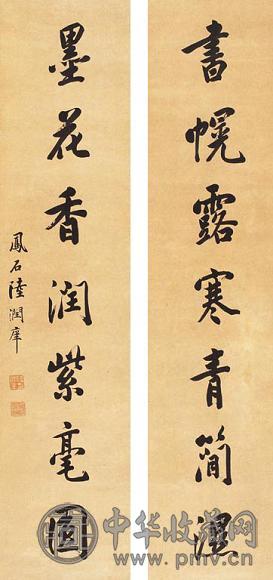 書幌露寒青簡濕
墨花香潤紫毫圓
鳳石陸潤庠
中华收藏网
www.pmv.cn